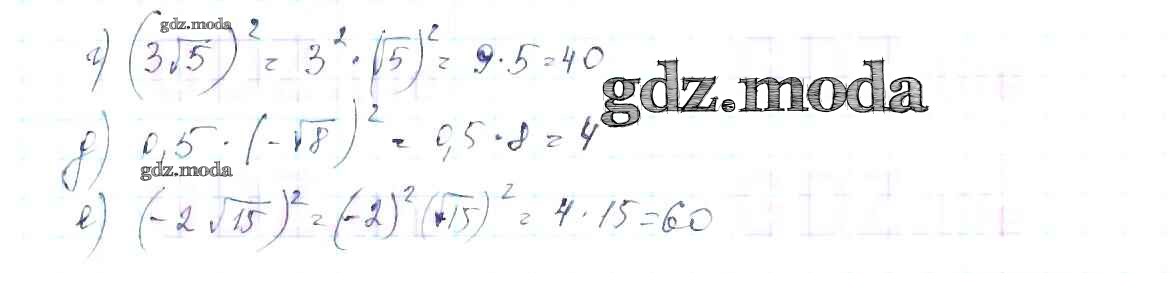 gdz.moda
г) (3√5)² = 3² · (√5)² = 9 · 5 = 40
gdz.moda
д) 0,5 · (-√8)² = 0,5 · 8 = 4
gdz.moda
е) (-2√15)² = (-2)² (√15)² = 4 · 15 = 60